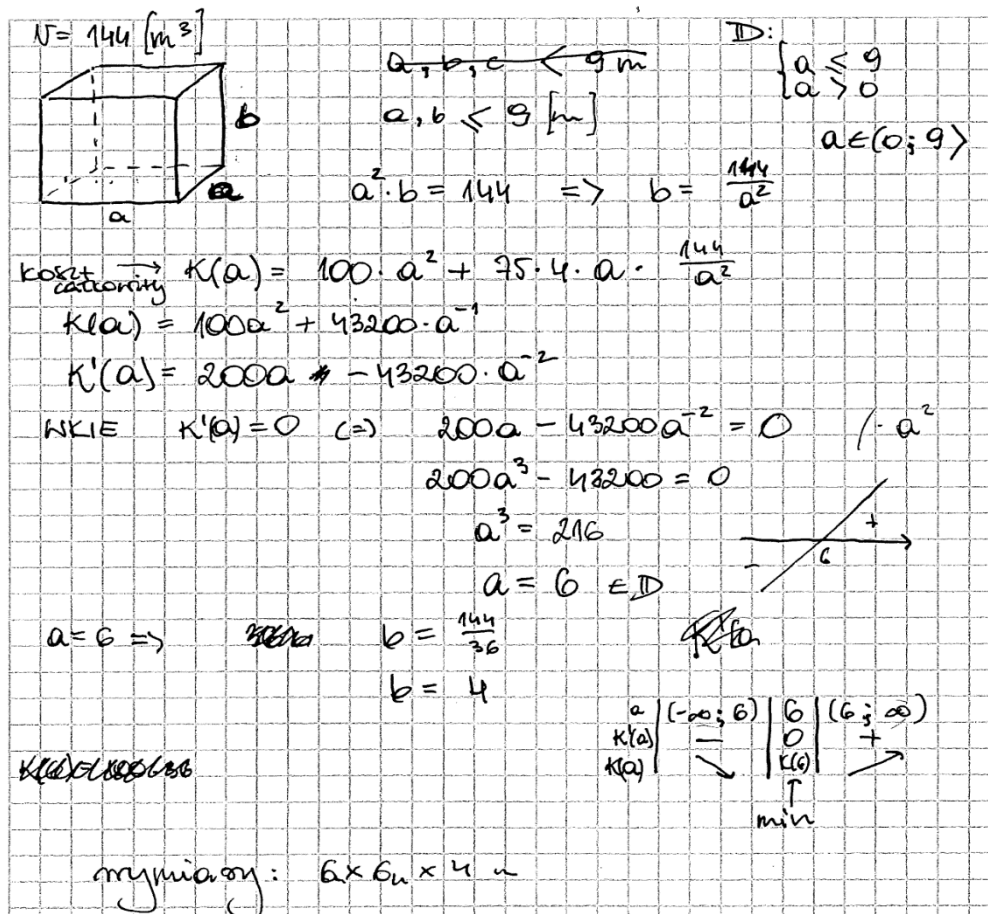 V = 144 [m³]
a, b, c < 9 m
D: { a ≤ 9
a > 0
a, b ≤ 9 [m]
a ∈ (0; 9⟩
b
a
a
a² · b = 144 => b = 144/a²
koszt całkowity → K(a) = 100 · a² + 75 · 4 · a · 144/a²
K(a) = 100a² + 43200 · a⁻¹
K'(a) = 200a - 43200 · a⁻²
WKIE K'(a) = 0 (=) 200a - 43200a⁻² = 0 / · a²
200a³ - 43200 = 0
a³ = 216
- 6 +
a = 6 ∈ D
a = 6 => b = 144/36
b = 4
a | (-∞; 6) | 6 | (6; ∞)
K'(a) | - | 0 | +
K(a) | ↘ | K(6) | ↗
↑
min
wymiary: 6 × 6 m × 4 m